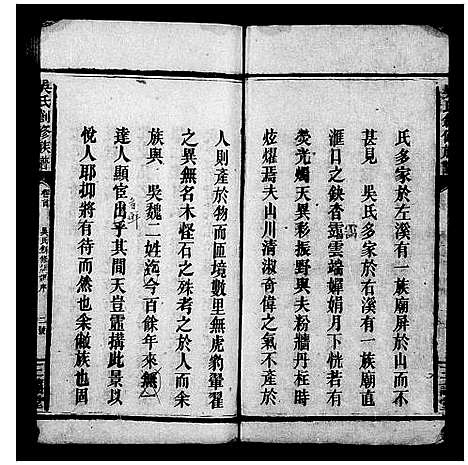 氏多家於左溪有一族廟屏於山
甚見　吳氏多家於右溪有一族廟直
滙日之鈌杳靄雲端嬋娟月下恍若有
熒光燭天異彩振野與夫粉牆丹柱時
炫燿焉夫山川清淑奇偉之氣不產於
人則產於物而匝境數里無虎豹翬翟
之異無名木怪石之殊考之於前
族與　吳魏二姓迄今百餘年來無
達人顯宦出乎其間天豈虛搆此景以
悅人耶抑將有待而然也余敝族也固
吳氏創修族譜
卷首
吳氏創修族譜序
二號